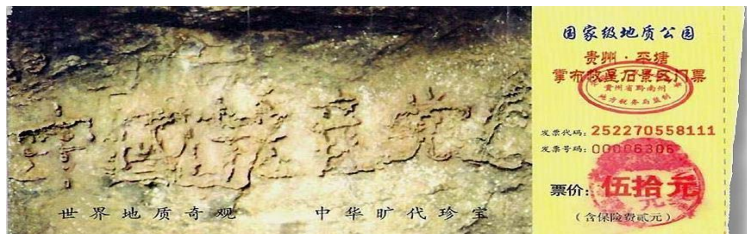 中國共产党亡
世界地质奇观 中华旷代珍宝
国家级地质公园
贵州·平塘
掌布救星石景区门票
贵州省黔南州
地方税务局监制
发票代码: 252270558111
发票号码: 00006305
票价: 伍拾元
(含保险费貳元)